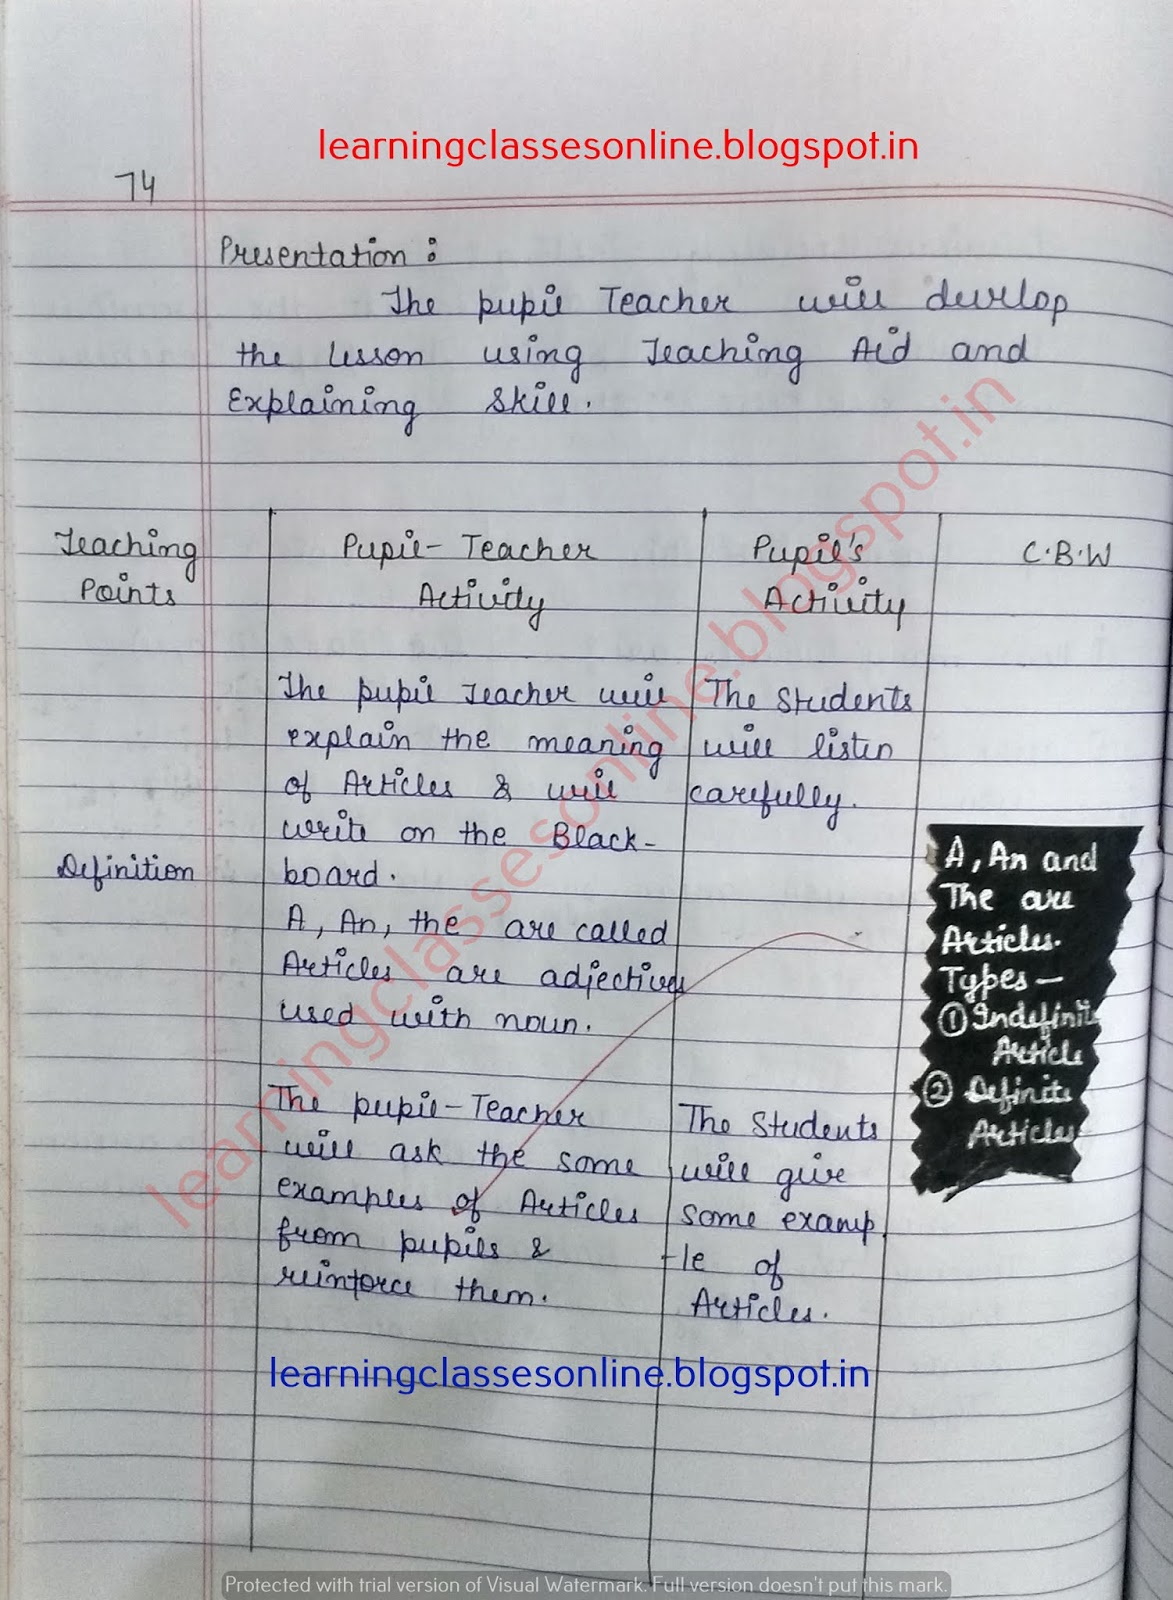 learningclassesonline.blogspot.in
74
Presentation :
The pupil Teacher will develop
the lesson using Teaching Aid and
Explaining Skill.
Teaching
Points
Pupil- Teacher
Activity
Pupil's
Activity
C.B.W
The pupil Teacher will
explain the meaning
of Articles & will
write on the Black-
board.
Definition
A, An, the are called
Articles are adjectives
used with noun.
The Students
will listen
carefully.
A, An and
The are
Articles.
Types -
① Indefinite
Article
② Definite
Articles
The pupil-Teacher
will ask the some
examples of Articles
from pupils &
reinforce them.
The Students
will give
some examp
-le of
Articles.
learningclassesonline.blogspot.in
learningclassesonline.blogspot.in
Protected with trial version of Visual Watermark. Full version doesn't put this mark.